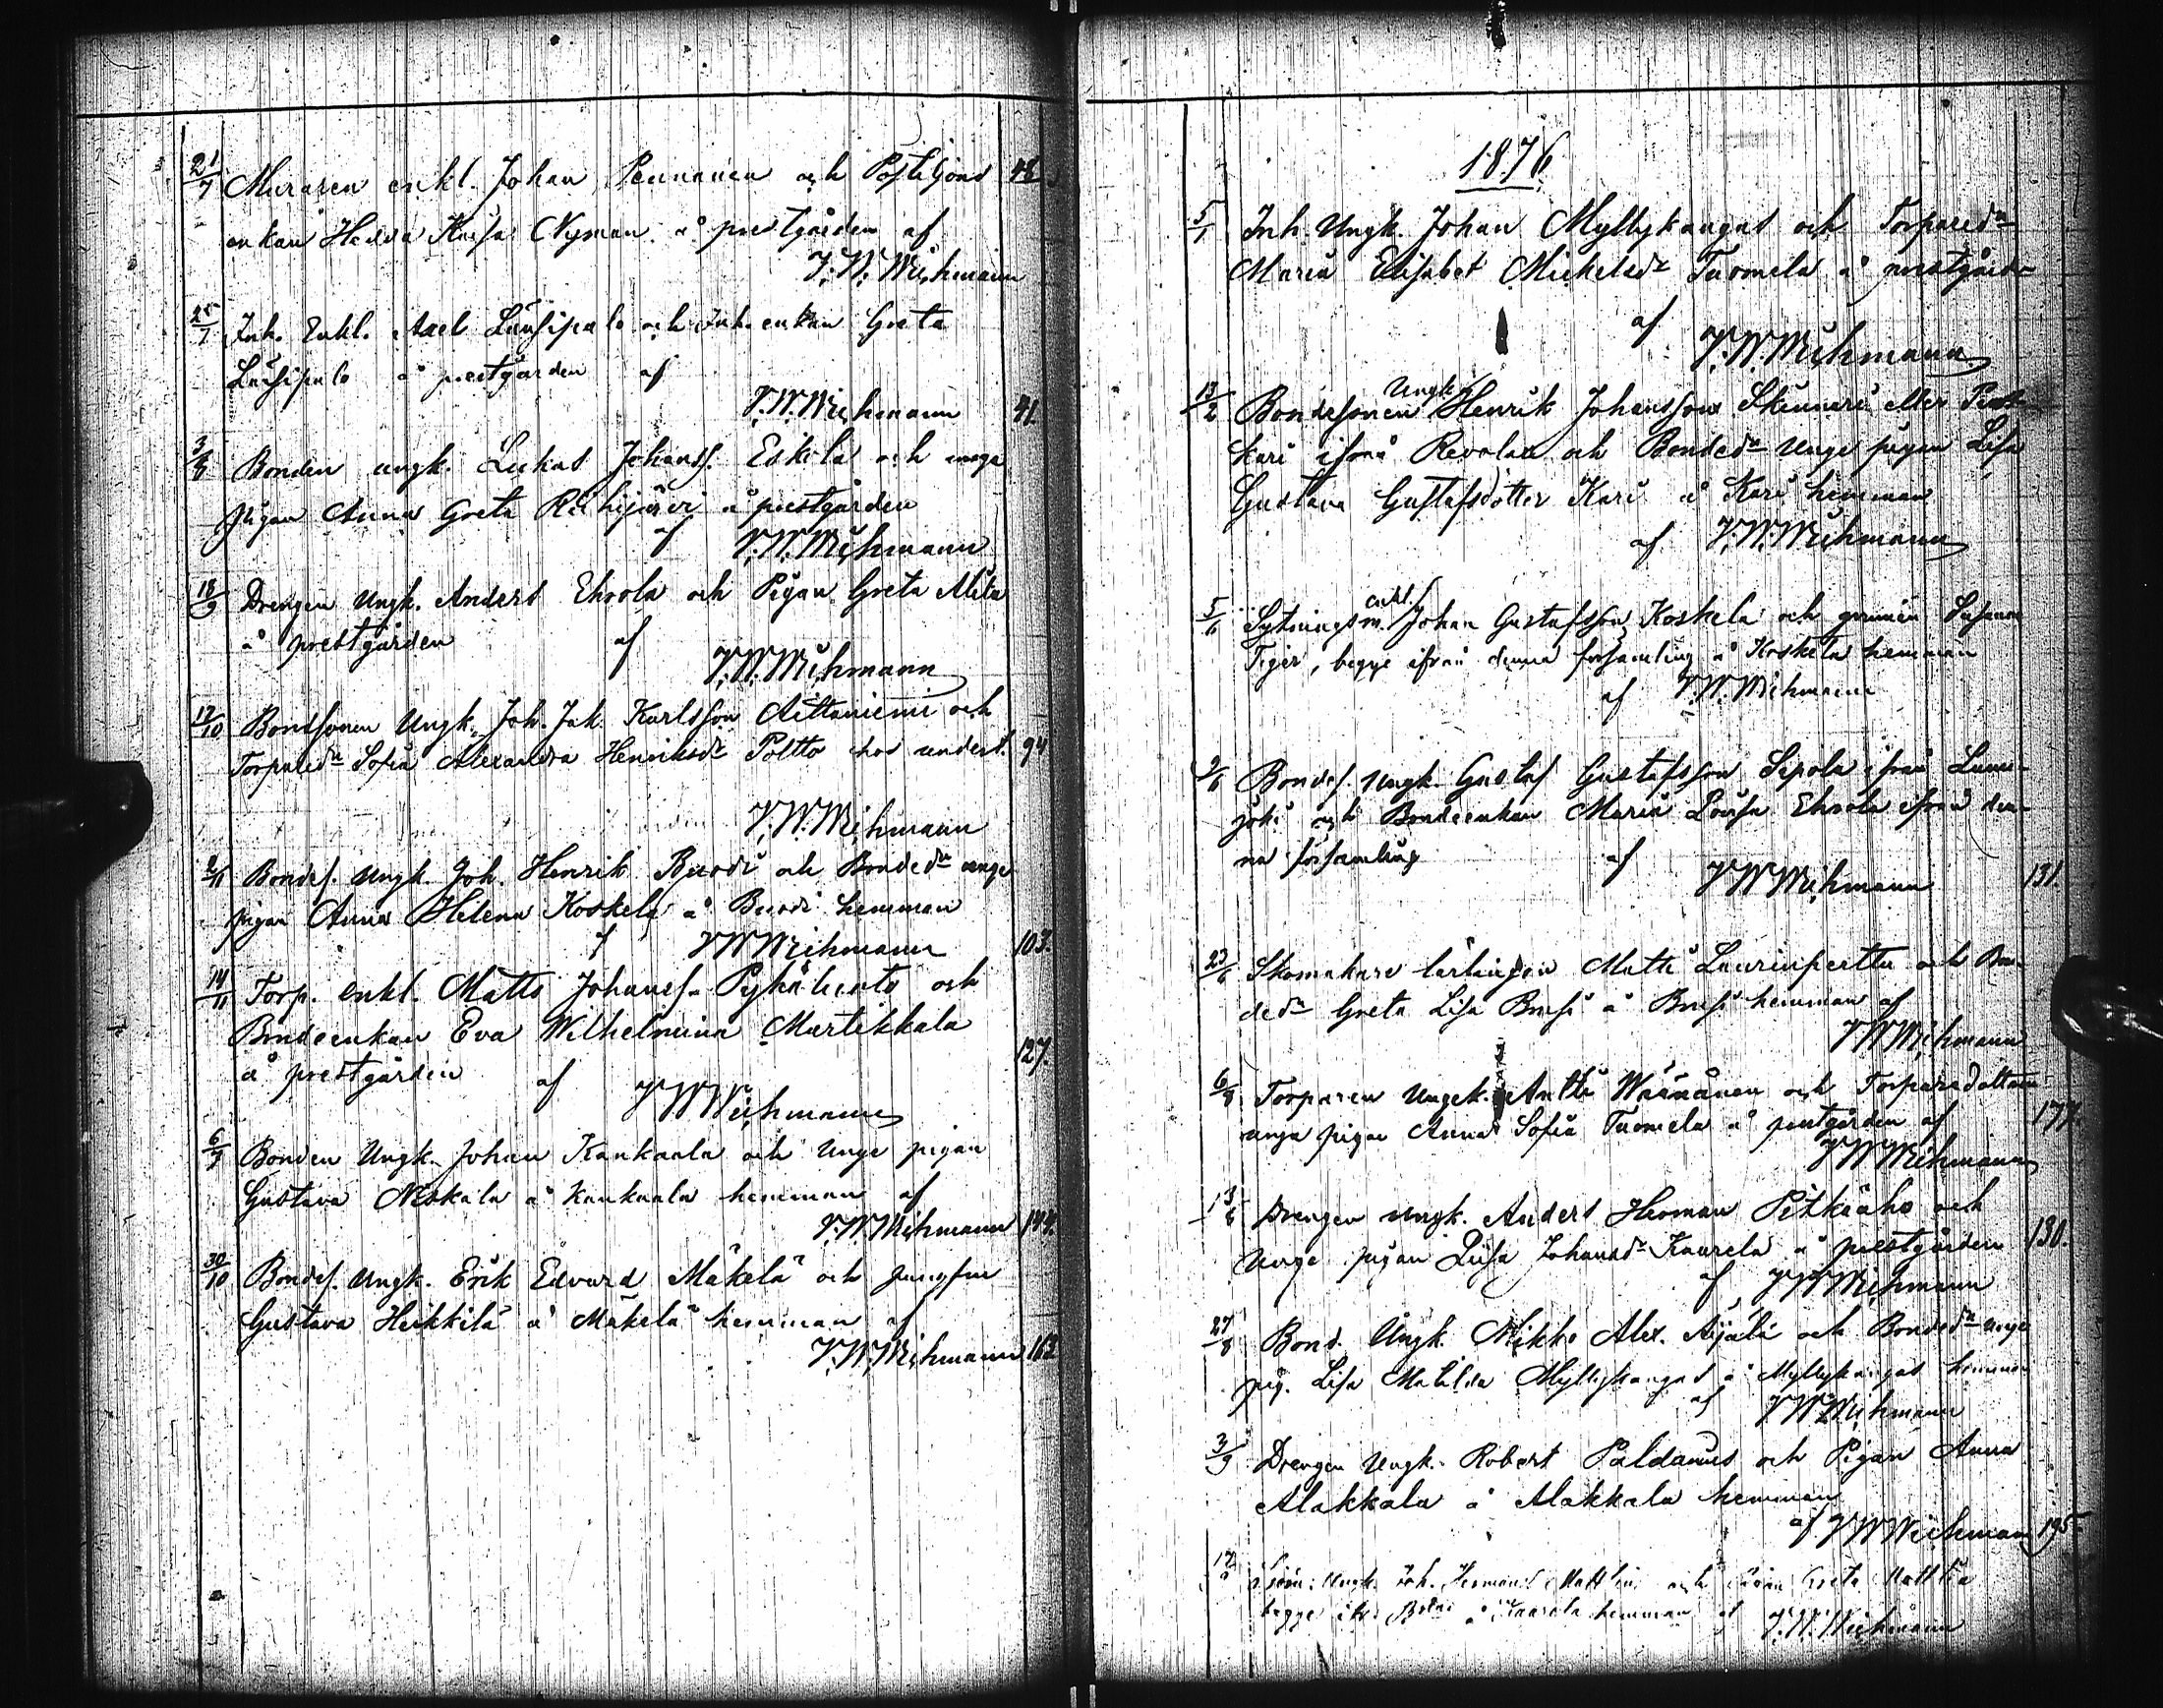 21/7 Muraren enkl. Johan Pennanen och Postiljons 48
enkan Hedda Kaisa Nyman å prestgården af
V. W. Wichmann
25/7 Inh. Enkl. Axel Länsipalo och Inh. enkan Greta
Länsipalo å prestgården af
V. W. Wichmann 41.
3/8 Bonden ungk. Lukas Johanss. Eskola och unga
pigan Anna Greta Reihijärvi å prestgården
af V. W. Wichmann
18/9 Drengen Ungk. Anders Ehrola och Pigan Greta
å prestgården af
V. W. Wichmann
17/10 Bondsonen Ungk. Joh. Jak. Karlsson Aittaniemi och
Torpared:r Sofia Alexandra Henriksd:r Poltto hos undert. 94
V. W. Wichmann
Bondes. Ungk. Joh. Henrik Ruodi och Bonded:r unga
pigan Anna Helena Koskela å Ruodi hemman
f V W Wichmann 103.
14/11 Torp. enkl. Matts Johanss. Pyhäluoto och
Bondeenkan Eva Wilhelmina Martikkala
å prestgården 127.
af V W Wichmann
6/9 Bonden Ungk. Johan Kankaala och Unge pigan
Gustava Niskala å Kankaala hemman af
V. W. Wichmann 144.
30/10 Bondes. Ungk. Erik Edvard Mäkelä och Jungfru
Gustava Heikkilä å Mäkelä hemman af
V. W. Wichmann 162
1876
5/1 Inh. Ungk. Johan Myllykangas och Torpared:r
Maria Elisabet Mickelsd:r Tuomela å prestgård:n
af V. W. Wichmann
13/2 Bondesonen Ungk. Henrik Johansson Skinnari eller
kari ifrån Revolax och Bonded:r Unge pigan Lisa
Gustava Gustafsdotter Kari å Kari hemman
af V. W. Wichmann
5/6 Sytningsm. enkl. Johan Gustafsson Koskela och Susanna
Tiger, begge ifrån denna församling å Koskela hemman
af V. W. Wichmann
9/6 Bondes. Ungk. Gustaf Gustafsson Sipola ifrån Lumi-
joki och Bondeenkan Maria Lovisa Ehrola ifrån den-
na församling af V W Wichmann 131.
23/6 Skomakare lärlingen Matti Laurinperttu och Bon-
ded:r Greta Lisa å hemman af
V W Wichmann
6/8 Torparen Ungk. Antti Wäänänen och Torparedottern
unga pigan Anna Sofia Tuomela å prestgården af 177.
V W Wichmann
13/8 Drengen ungk. Anders Herman Pitkäaho och
Unge pigan Liisa Johansd:r Kaurela å prestgården 130.
af V W Wichmann
27/8 Bond. Ungk. Mikko Alex. Äijälä och Bonded:r unge
pig. Lisa Matilda Myllykangas å Myllykangas hemman
af V W Wichmann
3/9 Drengen Ungk. Robert Paldanius och Pigan Anna
Alakkala å Alakkala hemman
af V W Wichmann 195.
17/ Ungk. Joh. Herman Mattlin och Greta Mattila
begge å hemman af V. W. Wichmann